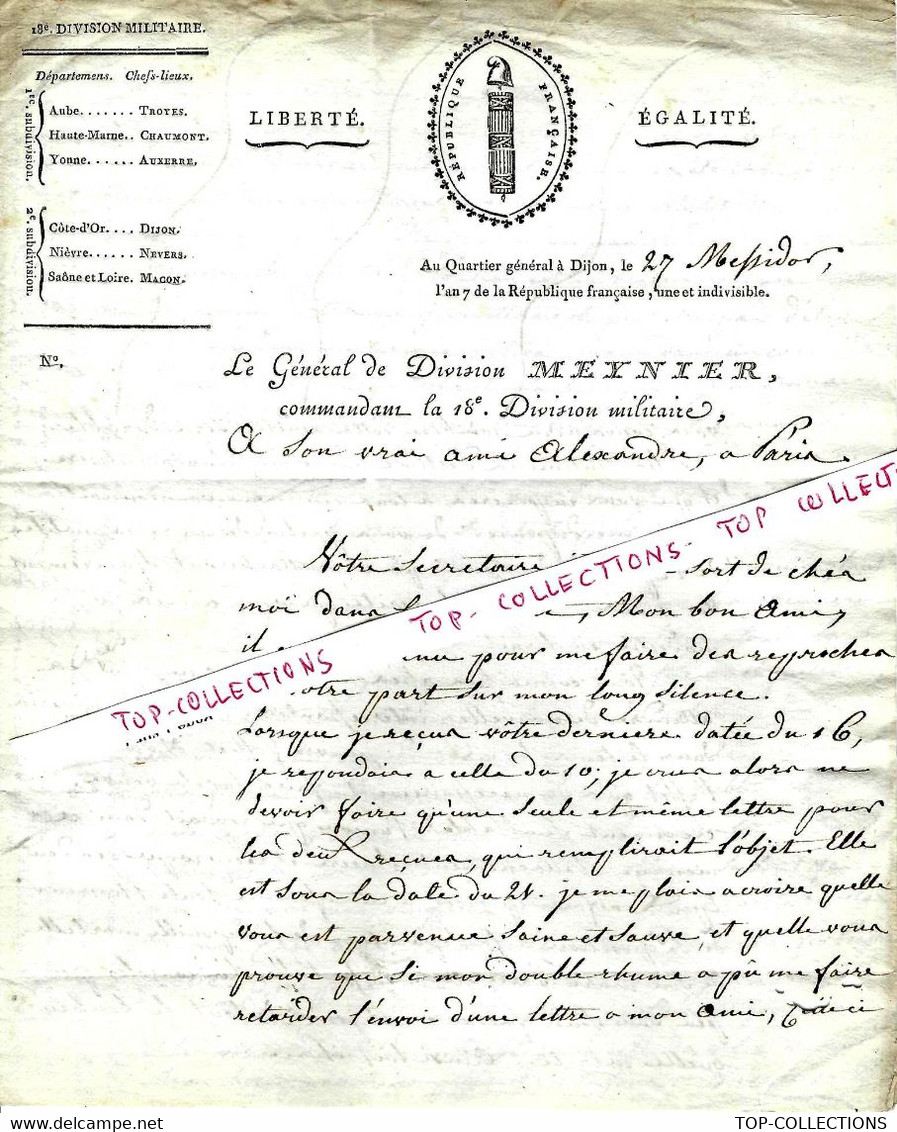 18e. DIVISION MILITAIRE.
Départemens. Chefs-lieux.
1re. subdivision.
Aube....... TROYES.
Haute-Marne.. CHAUMONT.
Yonne...... AUXERRE.
2e. subdivision.
Côte-d'Or.... DIJON.
Nièvre...... NEVERS.
Saône et Loire. MACON.
LIBERTÉ.
RÉPUBLIQUE FRANÇAISE.
ÉGALITÉ.
Au Quartier général à Dijon, le 27 Messidor,
l'an 7 de la République française, une et indivisible.
No.
Le Général de Division MEYNIER,
commandant la 18e. Division militaire,
A son vrai ami Alexandre, a Paris.
Vôtre Secretaire sort de chés
moi dans Mon bon Ami,
il pour me faire des reproches
part sur mon long silence.
Lorsque je reçus vôtre derniere datée du 16,
je repondais a celle du 10; je crus alors ne
devoir faire qu'une seule et même lettre pour
les deux reçues, qui rempliroit l'objet. Elle
est sous la date du 21. je me plais a croire quelle
vous est parvenue saine et sauve, et quelle vous
prouve que si mon double rhume a pû me faire
retarder l'envoi d'une lettre a mon ami,
TOP-COLLECTIONS
TOP- COLLECTIONS-
TOP COLLECT
TOP-COLLECTIONS